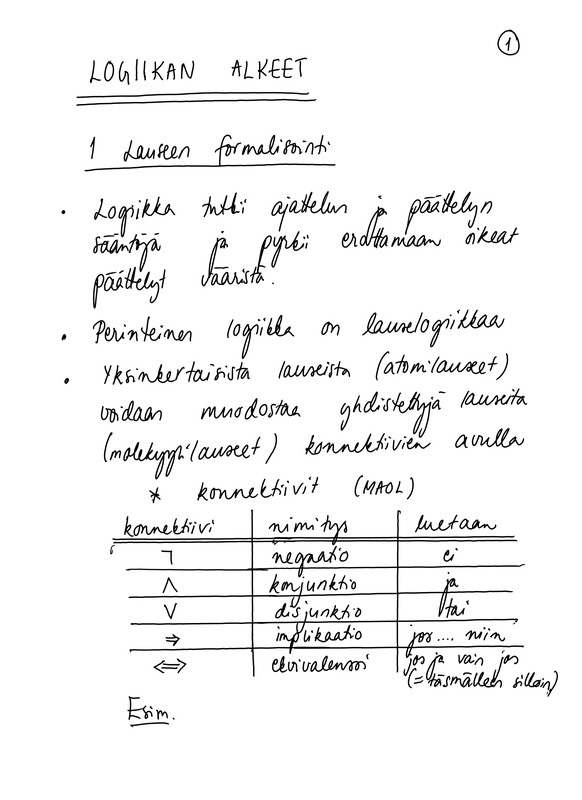 1
LOGIIKAN ALKEET
1 Lauseen formalisointi
• Logiikka tutkii ajattelun ja päättelyn
sääntöjä ja pyrkii erottamaan oikeat
päättelyt vääristä.
• Perinteinen logiikka on lauselogiikkaa
• Yksinkertaisista lauseista (atomilauseet)
voidaan muodostaa yhdistettyjä lauseita
(molekyylilauseet) konnektiivien avulla
* konnektiivit (MAOL)
konnektiivi nimitys luetaan
¬ negaatio ei
∧ konjunktio ja
∨ disjunktio tai
⇒ implikaatio jos .... niin
⇔ ekvivalenssi jos ja vain jos
(= täsmälleen silloin)
Esim.